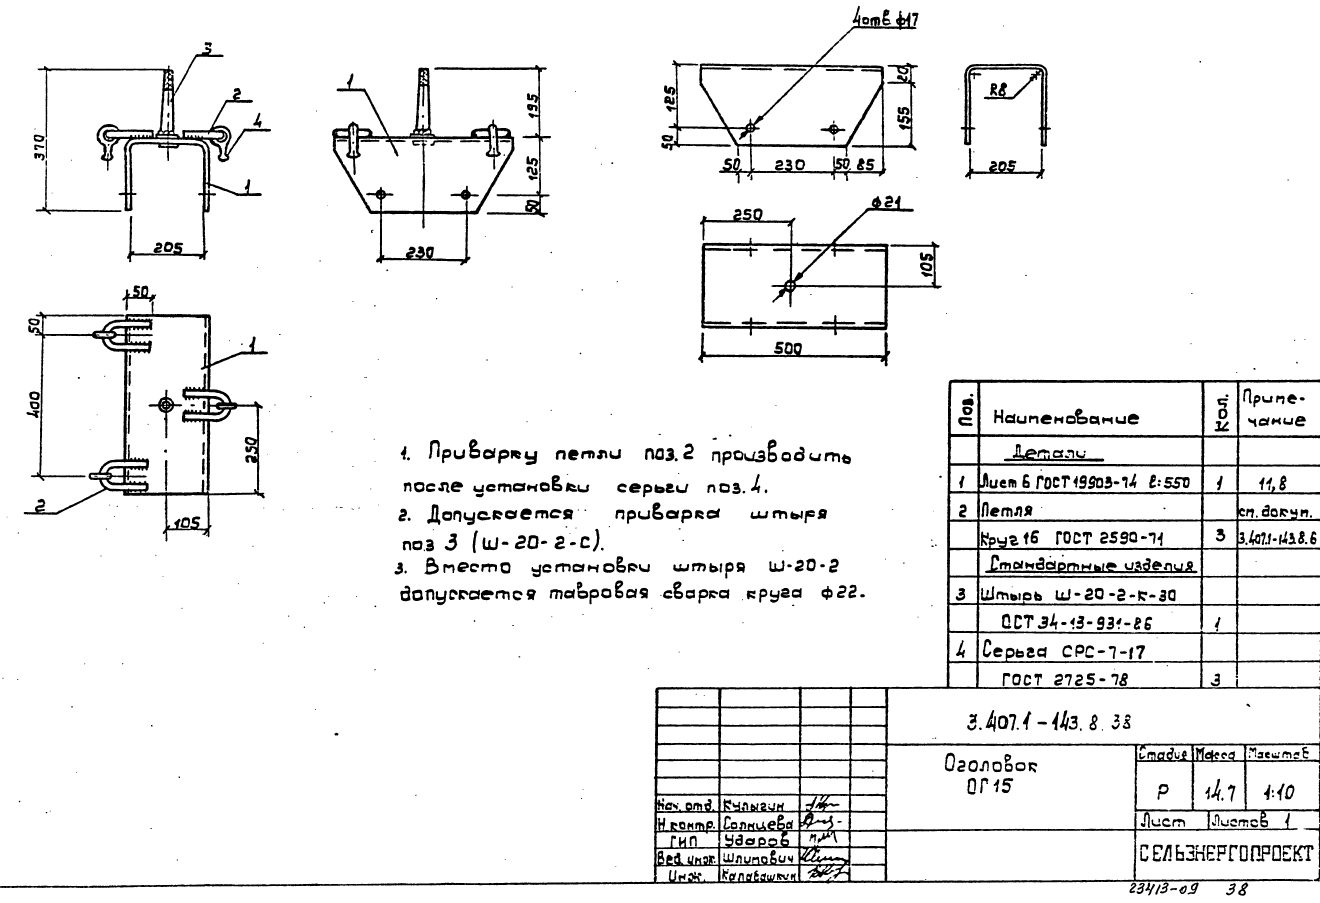 3
2
4
1
370
205
1
195
125
50
230
4 отв ф17
125
50
20
155
50
230
50
85
R8
205
250
ф21
105
500
50
50
400
1
250
2
105
1. Приварку петли поз. 2 производить
после установки серьги поз. 4.
2. Допускается приварка штыря
поз 3 (Ш-20-2-С).
3. Вместо установки штыря Ш-20-2
допускается тавровая сварка круга ф22.
Поз. Наименование Кол. Приме-
чание
Детали
1 Лист 6 ГОСТ 19903-74 ℓ=550 1 11,8
2 Петля см. докум.
Круг 16 ГОСТ 2590-71 3 3.407.1-143.8.6
Стандартные изделия
3 Штырь Ш-20-2-К-30
ОСТ 34-13-931-86 1
4 Серьга СРС-7-17
ГОСТ 2725-78 3
3.407.1-143.8.38
Оголовок
ОГ15
Стадия Масса Масштаб
Р 14.7 1:10
Лист Листов 1
СЕЛЬЭНЕРГОПРОЕКТ
Нач. отд. Кулыгин
Н контр. Солнцева
ГИП Ударов
Вед. инж. Шлипович
Инж. Калабашкин
23413-09 38